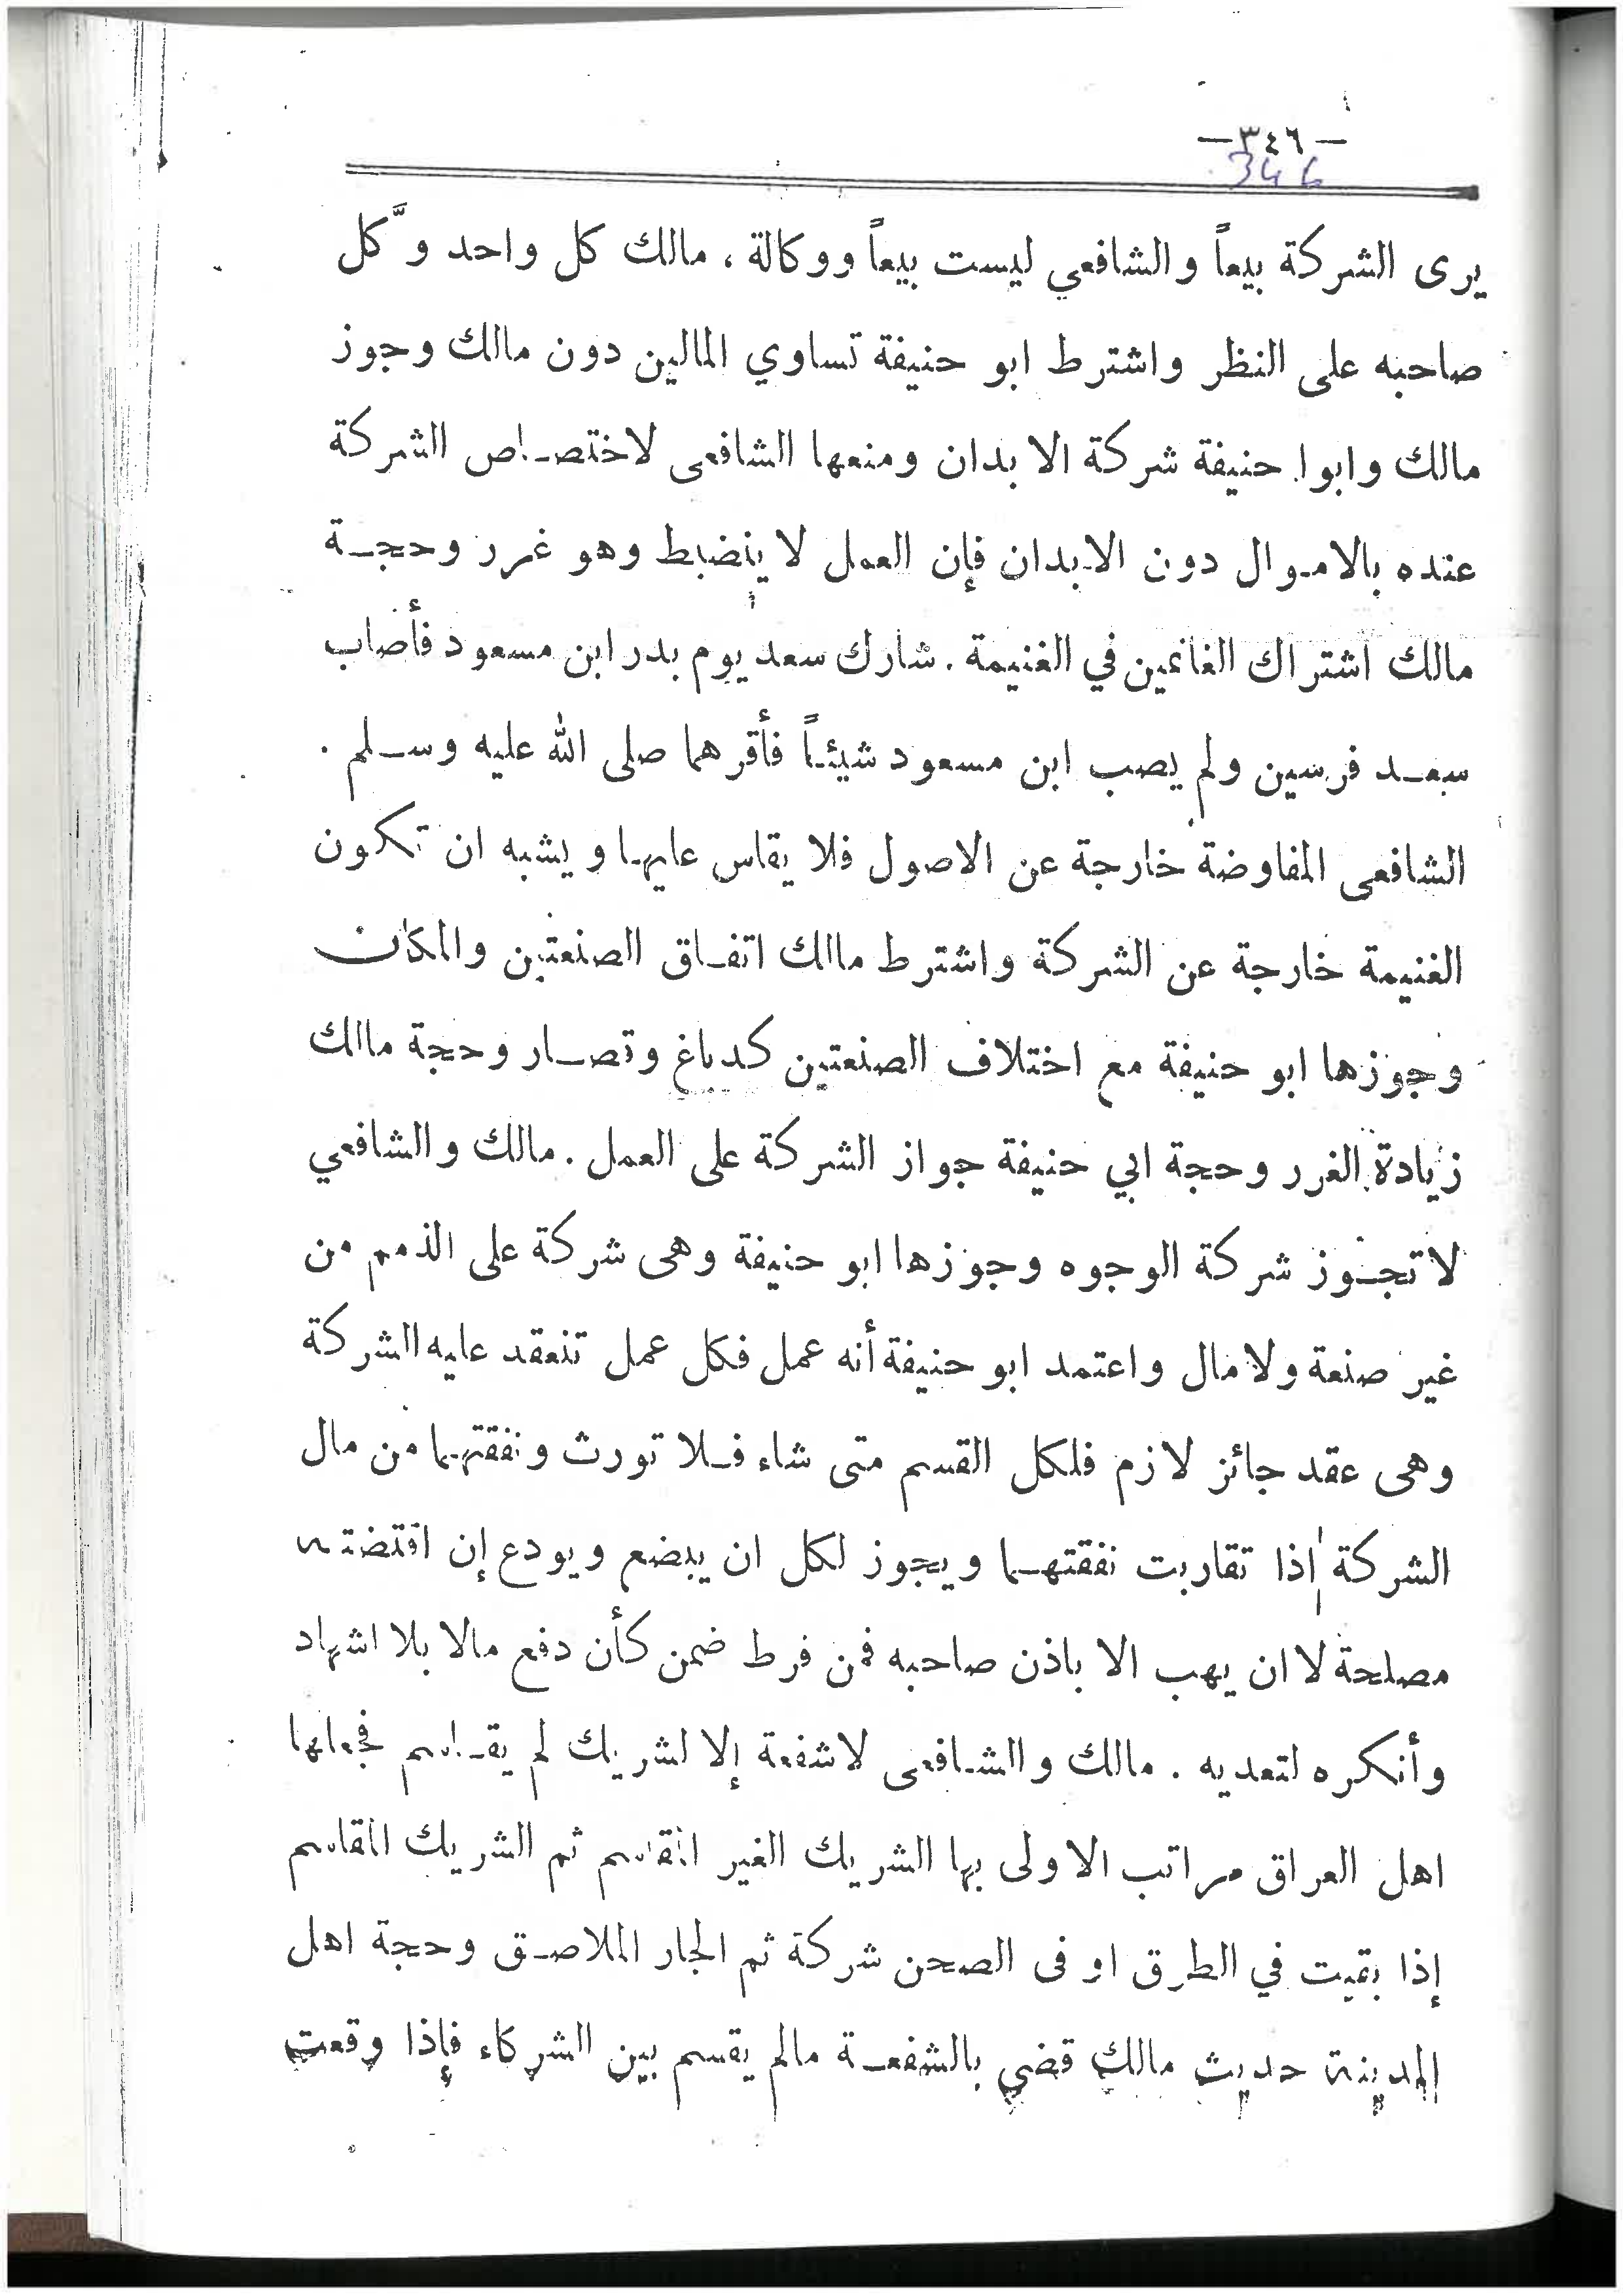 —٣٤٦—
346
يرى الشركة بيعاً والشافعي ليست بيعاً ووكالة ، مالك كل واحد وَّكل
صاحبه على النظر واشترط ابو حنيفة تساوي المالين دون مالك وجوز
مالك وابوا حنيفة شركة الابدان ومنعها الشافعى لاختصاص الشركة
عنده بالاموال دون الابدان فإن العمل لا ينضبط وهو غرر وحجة
مالك اشتراك الغانمين في الغنيمة . شارك سعد يوم بدر ابن مسعود فأصاب
سعد فرسين ولم يصب ابن مسعود شيئاً فأقرهما صلى الله عليه وسلم .
الشافعى المفاوضة خارجة عن الاصول فلا يقاس عليها ويشبه ان تكون
الغنيمة خارجة عن الشركة واشترط مالك اتفاق الصنعتين والمكان
وجوزها ابو حنيفة مع اختلاف الصنعتين كدباغ وقصار وحجة مالك
زيادة الغرر وحجة ابي حنيفة جواز الشركة على العمل . مالك والشافعي
لا تجوز شركة الوجوه وجوزها ابو حنيفة وهى شركة على الذمم من
غير صنعة ولا مال واعتمد ابو حنيفة أنه عمل فكل عمل تنعقد عليه الشركة
وهى عقد جائز لازم فلكل القسم متى شاء فلا تورث ونفقتهما من مال
الشركة اذا تقاربت نفقتهما ويجوز لكل ان يبضع ويودع إن اقتضته
مصلحة لا ان يهب الا باذن صاحبه فمن فرط ضمن كأن دفع مالا بلا اشهاد
وأنكره لتعديه . مالك والشافعى لاشفعة إلا لشريك لم يقاسم فجعلها
اهل العراق مراتب الاولى بها الشريك الغير المقاسم ثم الشريك المقاسم
إذا بقيت في الطرق او فى الصحن شركة ثم الجار الملاصق وحجة اهل
المدينة حديث مالك قضي بالشفعة مالم يقسم بين الشركاء فإذا وقعت